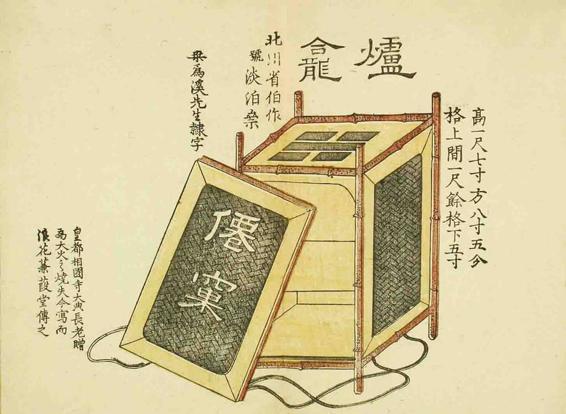 爐龕
高一尺七寸方八寸五分
格上間一尺餘格下五寸
北川省伯作
號淡泊齋
梁爲溪先生隷字
僊窠
皇都相國寺大典長老贈
爲大火之燒失今寫而
浪花蒹葭堂傳之